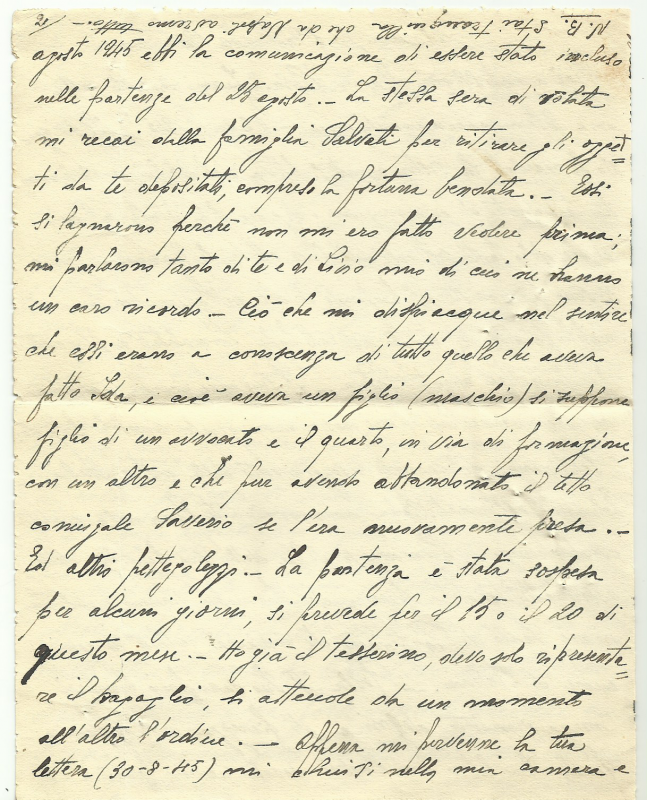 N.B. Stai tranquilla che da Napoli avremo tutto. —
agosto 1945 ebbi la comunicazione di essere stato incluso
nelle partenze del 25 agosto. — La stessa sera di volata
mi recai dalla famiglia Salvati per ritirare gli ogget=
ti da te depositati, compreso la fortuna bendata. — Essi
si lagnarono perchè non mi ero fatto vedere prima;
mi parlarono tanto di te e di Livio mio di cui ne hanno
un caro ricordo. — Ciò che mi dispiacque nel sentire
che essi erano a conoscenza di tutto quello che aveva
fatto Ida, e cioè aveva un figlio (maschio) si suppone
figlio di un avvocato e il quarto, in via di formazione,
con un altro e che pur avendo abbandonato il tetto
coniugale Saverio se l'era nuovamente presa. —
Ed altri pettegoleggi. — La partenza è stata sospesa
per alcuni giorni, si prevede per il 15 o il 20 di
questo mese. — Ho già il tesserino, devo solo ripresenta=
re il bagaglio, si attende da un momento
all'altro l'ordine. — Appena mi pervenne la tua
lettera (30-8-45) mi chiusi nella mia camera e